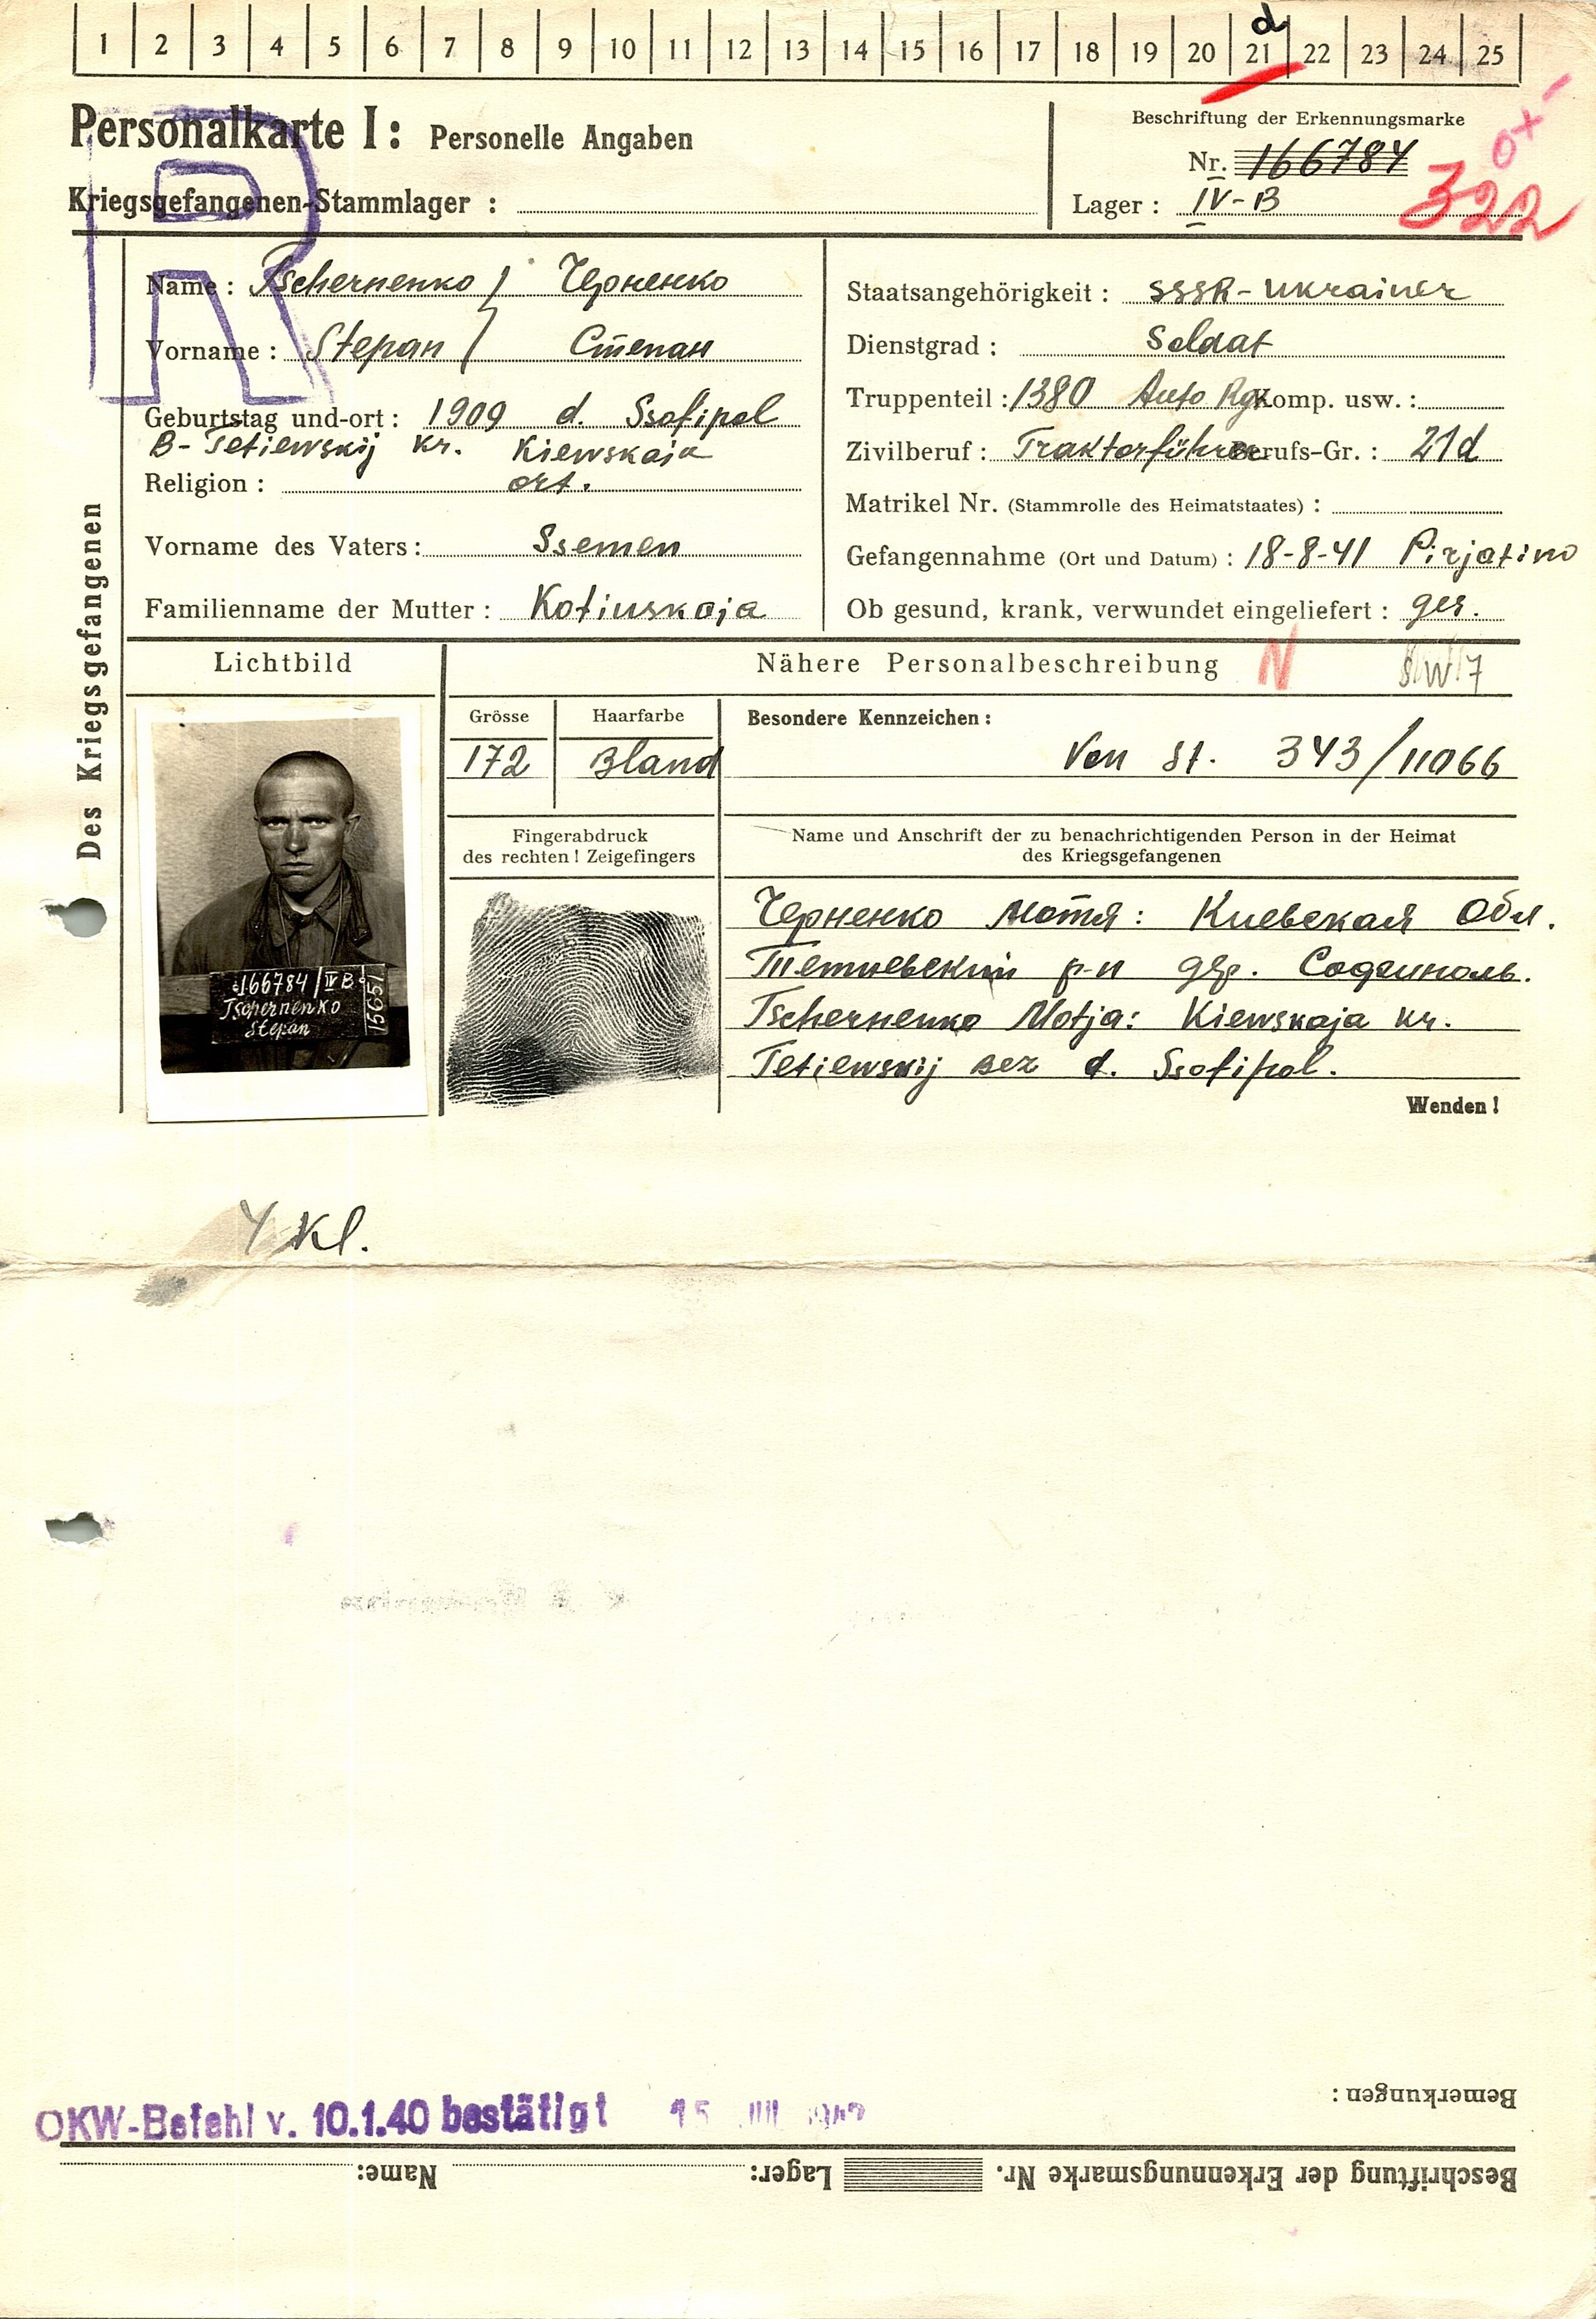 1 2 3 4 5 6 7 8 9 10 11 12 13 14 15 16 17 18 19 20 21 22 23 24 25
d
Personalkarte I: Personelle Angaben
Beschriftung der Erkennungsmarke
Nr. 166784
Kriegsgefangenen-Stammlager :
Lager : IV-B
322
R
Des Kriegsgefangenen
Name : Tschernenko / Черненко
Vorname : Stepan / Степан
Geburtstag und-ort : 1909 d. Ssofipol
B- Tetiewskij kr. Kiewskaja
Religion : ort.
Vorname des Vaters : Ssemen
Familienname der Mutter : Kotiuskaja
Staatsangehörigkeit : SSSR - Ukrainer
Dienstgrad : Soldat
Truppenteil : 1380 Auto Rg Komp. usw. :
Zivilberuf : Traktorführer Berufs-Gr. : 21d
Matrikel Nr. (Stammrolle des Heimatstaates) :
Gefangennahme (Ort und Datum) : 18-8-41 Pirjatino
Ob gesund, krank, verwundet eingeliefert : ges.
Lichtbild
Nähere Personalbeschreibung N
Grösse Haarfarbe Besondere Kennzeichen :
172 Bland Von St. 343/11066
Fingerabdruck
des rechten ! Zeigefingers
Name und Anschrift der zu benachrichtigenden Person in der Heimat
des Kriegsgefangenen
Черненко Мотя: Киевская Обл.
Тетиевский р-н дер. Софиполь.
Tschernenko Motja: Kiewskaja kr.
Tetiewskij Bez d. Ssofipol.
Wenden !
166784/IV B
Tschernenko
Stepan
15651
4 Kl.
Bemerkungen :
OKW-Befehl v. 10.1.40 bestätigt
Beschriftung der Erkennungsmarke Nr. Lager: Name: